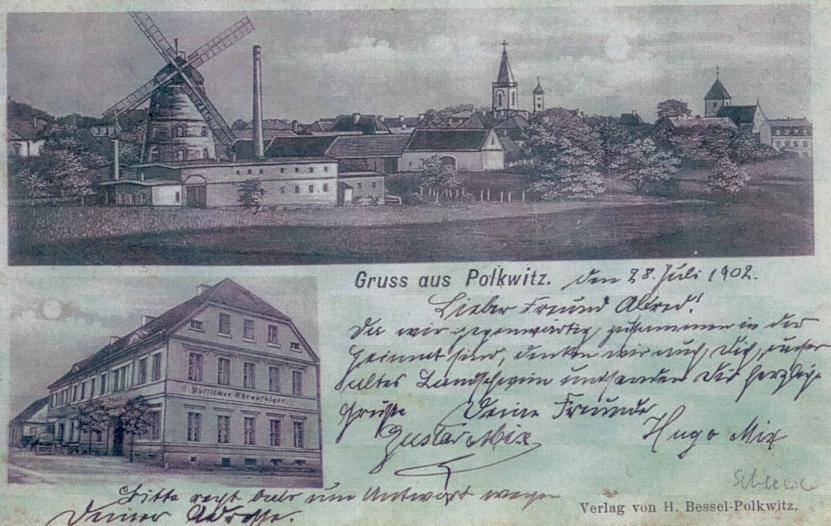 Gruss aus Polkwitz. den 28. Juli 1902.
Lieber Freund Alfred!
Da wir gegenwärtig zusammen in der
Heimat sind, denken wir auch Dich, unser
altes Landschwein und senden Dir herzliche
Grüße Deine Freunde
Gustav Mix Hugo Mix
Bitte recht bald um Antwort wegen
Deiner Adresse.
Verlag von H. Bessel-Polkwitz.